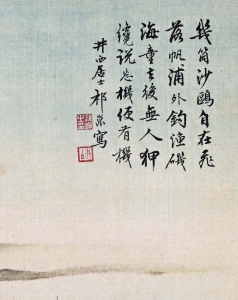 幾箇沙鷗自在飛
落帆浦外釣漁磯
海童去後無人狎
纔說忘機便有機
井西居士祁崑寫